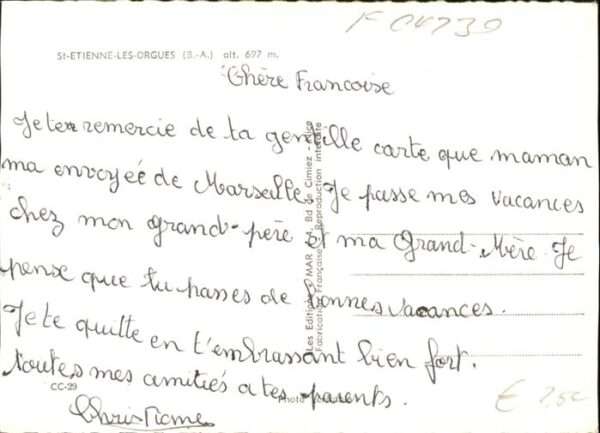 F 04739
St-ETIENNE-LES-ORGUES (B.-A.) alt. 697 m.
Chère Francoise
Je ten remercie de ta gentille carte que maman
ma envoyée de Marseille. Je passe mes vacances
chez mon grand-père et ma Grand-Mère. Je
pense que tu passes de bonnes vacances.
Je te quitte en t'embrassant bien fort.
toutes mes amitiés a tes parents.
CC-29
Christiane
Les Editions MAR Bd de Cimiez - Nice
Fabrication Française Reproduction interdite
Photo
€